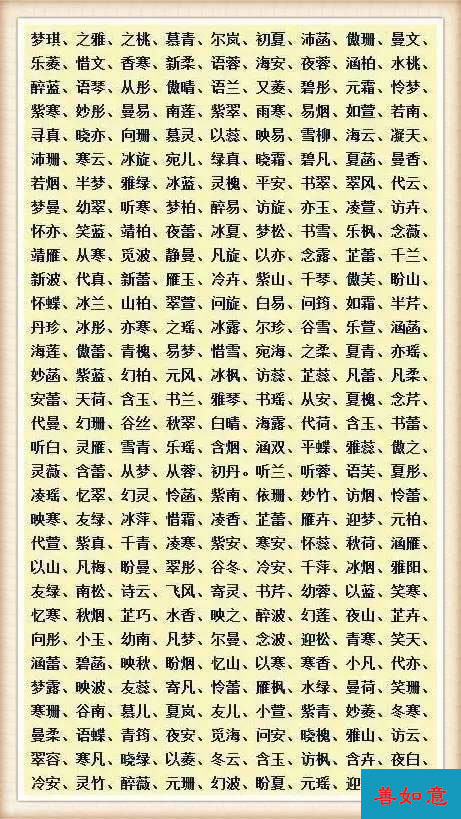 梦琪、之雅、之桃、慕青、尔岚、初夏、沛菡、傲珊、曼文、
乐菱、惜文、香寒、新柔、语蓉、海安、夜蓉、涵柏、水桃、
醉蓝、语琴、从彤、傲晴、语兰、又菱、碧彤、元霜、怜梦、
紫寒、妙彤、曼易、南莲、紫翠、雨寒、易烟、如萱、若南、
寻真、晓亦、向珊、慕灵、以蕊、映易、雪柳、海云、凝天、
沛珊、寒云、冰旋、宛儿、绿真、晓霜、碧凡、夏菡、曼香、
若烟、半梦、雅绿、冰蓝、灵槐、平安、书翠、翠风、代云、
梦曼、幼翠、听寒、梦柏、醉易、访旋、亦玉、凌萱、访卉、
怀亦、笑蓝、靖柏、夜蕾、冰夏、梦松、书雪、乐枫、念薇、
靖雁、从寒、觅波、静曼、凡旋、以亦、念露、芷蕾、千兰、
新波、代真、新蕾、雁玉、冷卉、紫山、千琴、傲芙、盼山、
怀蝶、冰兰、山柏、翠萱、问旋、白易、问筠、如霜、半芹、
丹珍、冰彤、亦寒、之瑶、冰露、尔珍、谷雪、乐萱、涵菡、
海莲、傲蕾、青槐、易梦、惜雪、宛海、之柔、夏青、亦瑶、
妙菡、紫蓝、幻柏、元风、冰枫、访蕊、芷蕊、凡蕾、凡柔、
安蕾、天荷、含玉、书兰、雅琴、书瑶、从安、夏槐、念芹、
代曼、幻珊、谷丝、秋翠、白晴、海露、代荷、含玉、书蕾、
听白、灵雁、雪青、乐瑶、含烟、涵双、平蝶、雅蕊、傲之、
灵薇、含蕾、从梦、从蓉、初丹。听兰、听蓉、语芙、夏彤、
凌瑶、忆翠、幻灵、怜菡、紫南、依珊、妙竹、访烟、怜蕾、
映寒、友绿、冰萍、惜霜、凌香、芷蕾、雁卉、迎梦、元柏、
代萱、紫真、千青、凌寒、紫安、寒安、怀蕊、秋荷、涵雁、
以山、凡梅、盼曼、翠彤、谷冬、冷安、千萍、冰烟、雅阳、
友绿、南松、诗云、飞风、寄灵、书芹、幼蓉、以蓝、笑寒、
忆寒、秋烟、芷巧、水香、映之、醉波、幻莲、夜山、芷卉、
向彤、小玉、幼南、凡梦、尔曼、念波、迎松、青寒、笑天、
涵蕾、碧菡、映秋、盼烟、忆山、以寒、寒香、小凡、代亦、
梦露、映波、友蕊、寄凡、怜蕾、雁枫、水绿、曼荷、笑珊、
寒珊、谷南、慕儿、夏岚、友儿、小萱、紫青、妙菱、冬寒、
曼柔、语蝶、青筠、夜安、觅海、问安、晓槐、雅山、访云、
翠容、寒凡、晓绿、以菱、冬云、含玉、访枫、含卉、夜白、
冷安、灵竹、醉薇、元珊、幻波、盼夏、元瑶、迎
善如意